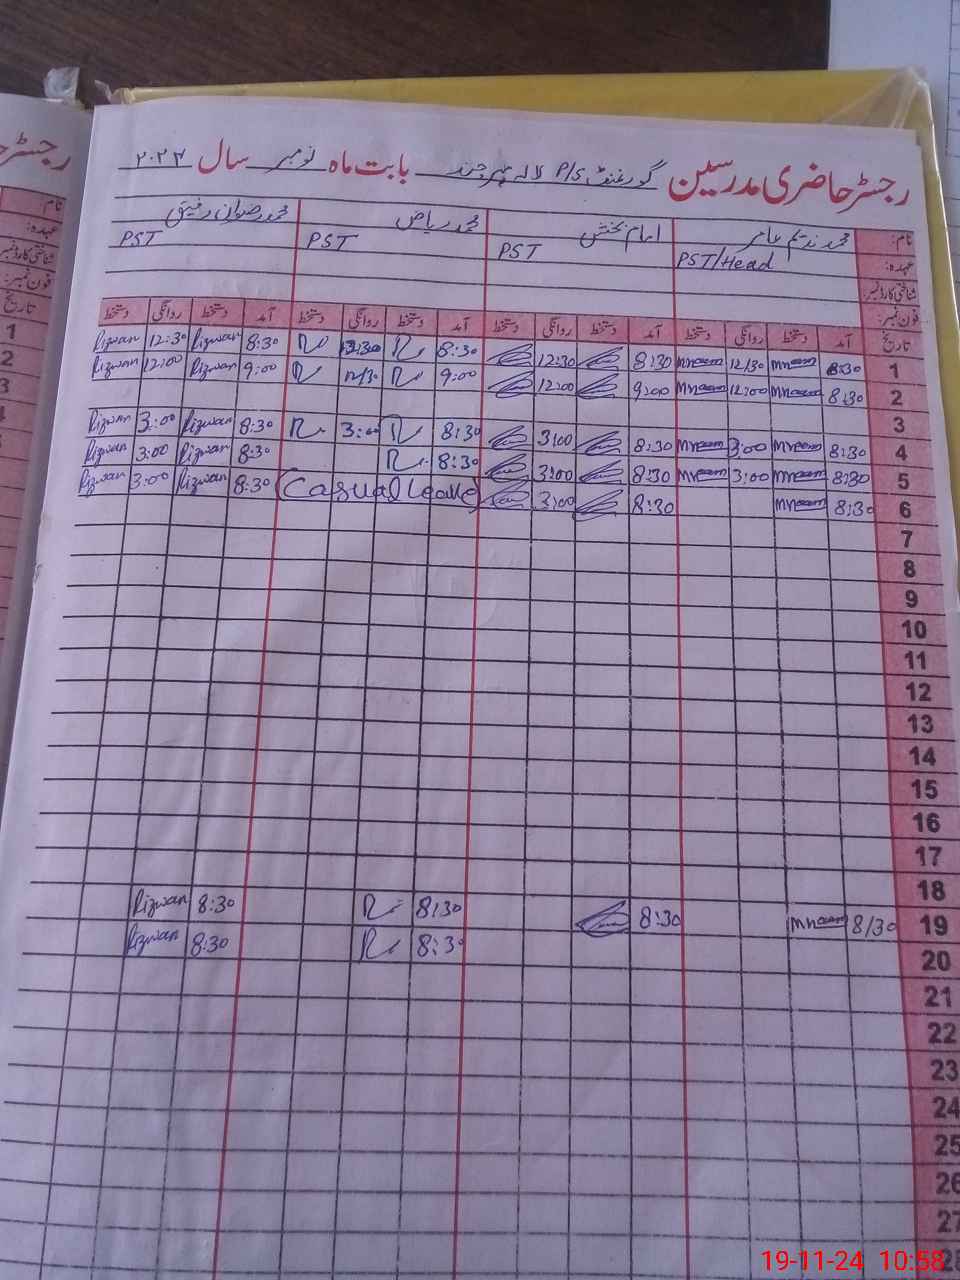 رجسٹر حاضری مدرسین گورغنٹ P/S لالہ بابت ماہ نومبر سال ۲۰۲۴
رجسٹر
نام: محمد ندیم عامر امام بخش محمد ریاض محمد رضوان رفیق
عہدہ: PST/Head PST PST PST
شناختی کارڈ نمبر:
فون نمبر:
تاریخ آمد دستخط روانگی دستخط آمد دستخط روانگی دستخط آمد دستخط روانگی دستخط آمد دستخط روانگی دستخط
1 8:30 Mnaeem 12/30 Mnaeem 8:30 12:30 8:30 12:30 8:30 Rizwan 12:30 Rizwan
2 8:30 Mnaeem 12:00 Mnaeem 9:00 12:00 9:00 12/30 9:00 Rizwan 12:00 Rizwan
3
4 8:30 Mnaeem 3:00 Mnaeem 8:30 3:00 8:30 3:00 8:30 Rizwan 3:00 Rizwan
5 8:30 Mnaeem 3:00 Mnaeem 8:30 3:00 8:30 8:30 Rizwan 3:00 Rizwan
6 8:30 Mnaeem 8:30 3:00 Casual Leave 8:30 Rizwan 3:00 Rizwan
7
8
9
10
11
12
13
14
15
16
17
18
19 8/30 Mnaeem 8:30 8:30 8:30 Rizwan
20 8:30 8:30 Rizwan
21
22
23
24
25
26
27
28
نام
عہدہ:
شناختی کارڈ نمبر
فون نمبر:
تاریخ
1
2
3
4
19-11-24 10:58